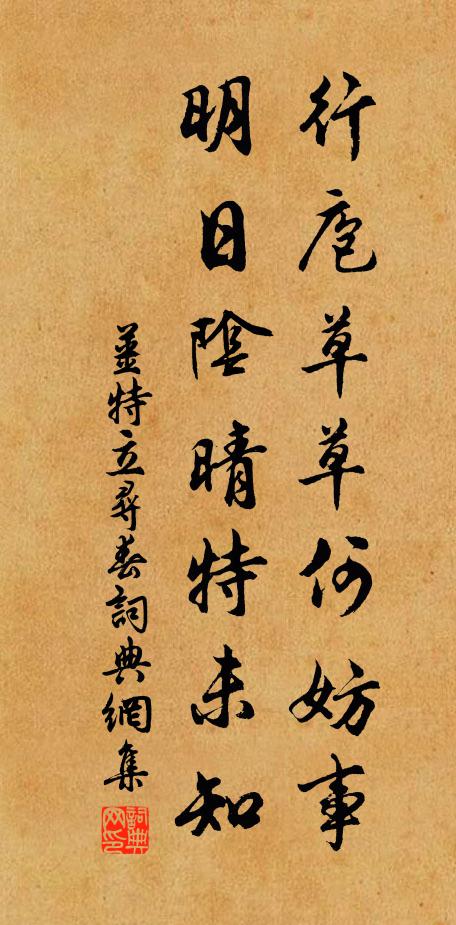 行庖草草何妨事
明日陰晴特未知
姜特立尋春詞典網集
詞典网印